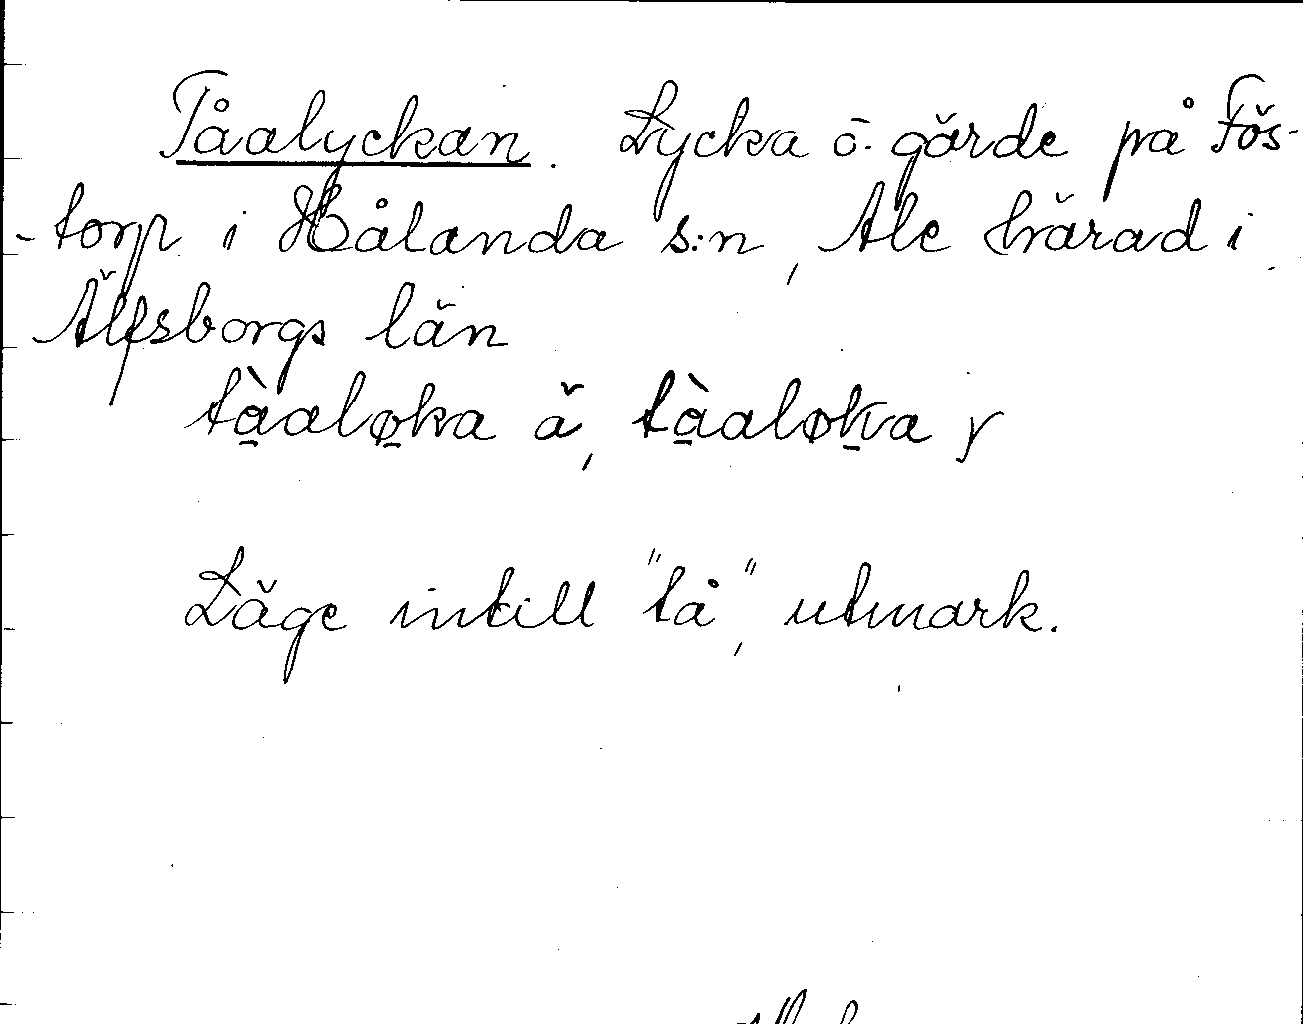 Tåalyckan. Lycka o. gärde på Fös-
-torp i Hålanda s:n, Ale härad i
Älfsborgs län
tàaløka ä, tàaløka y
Läge intill "tå", utmark.